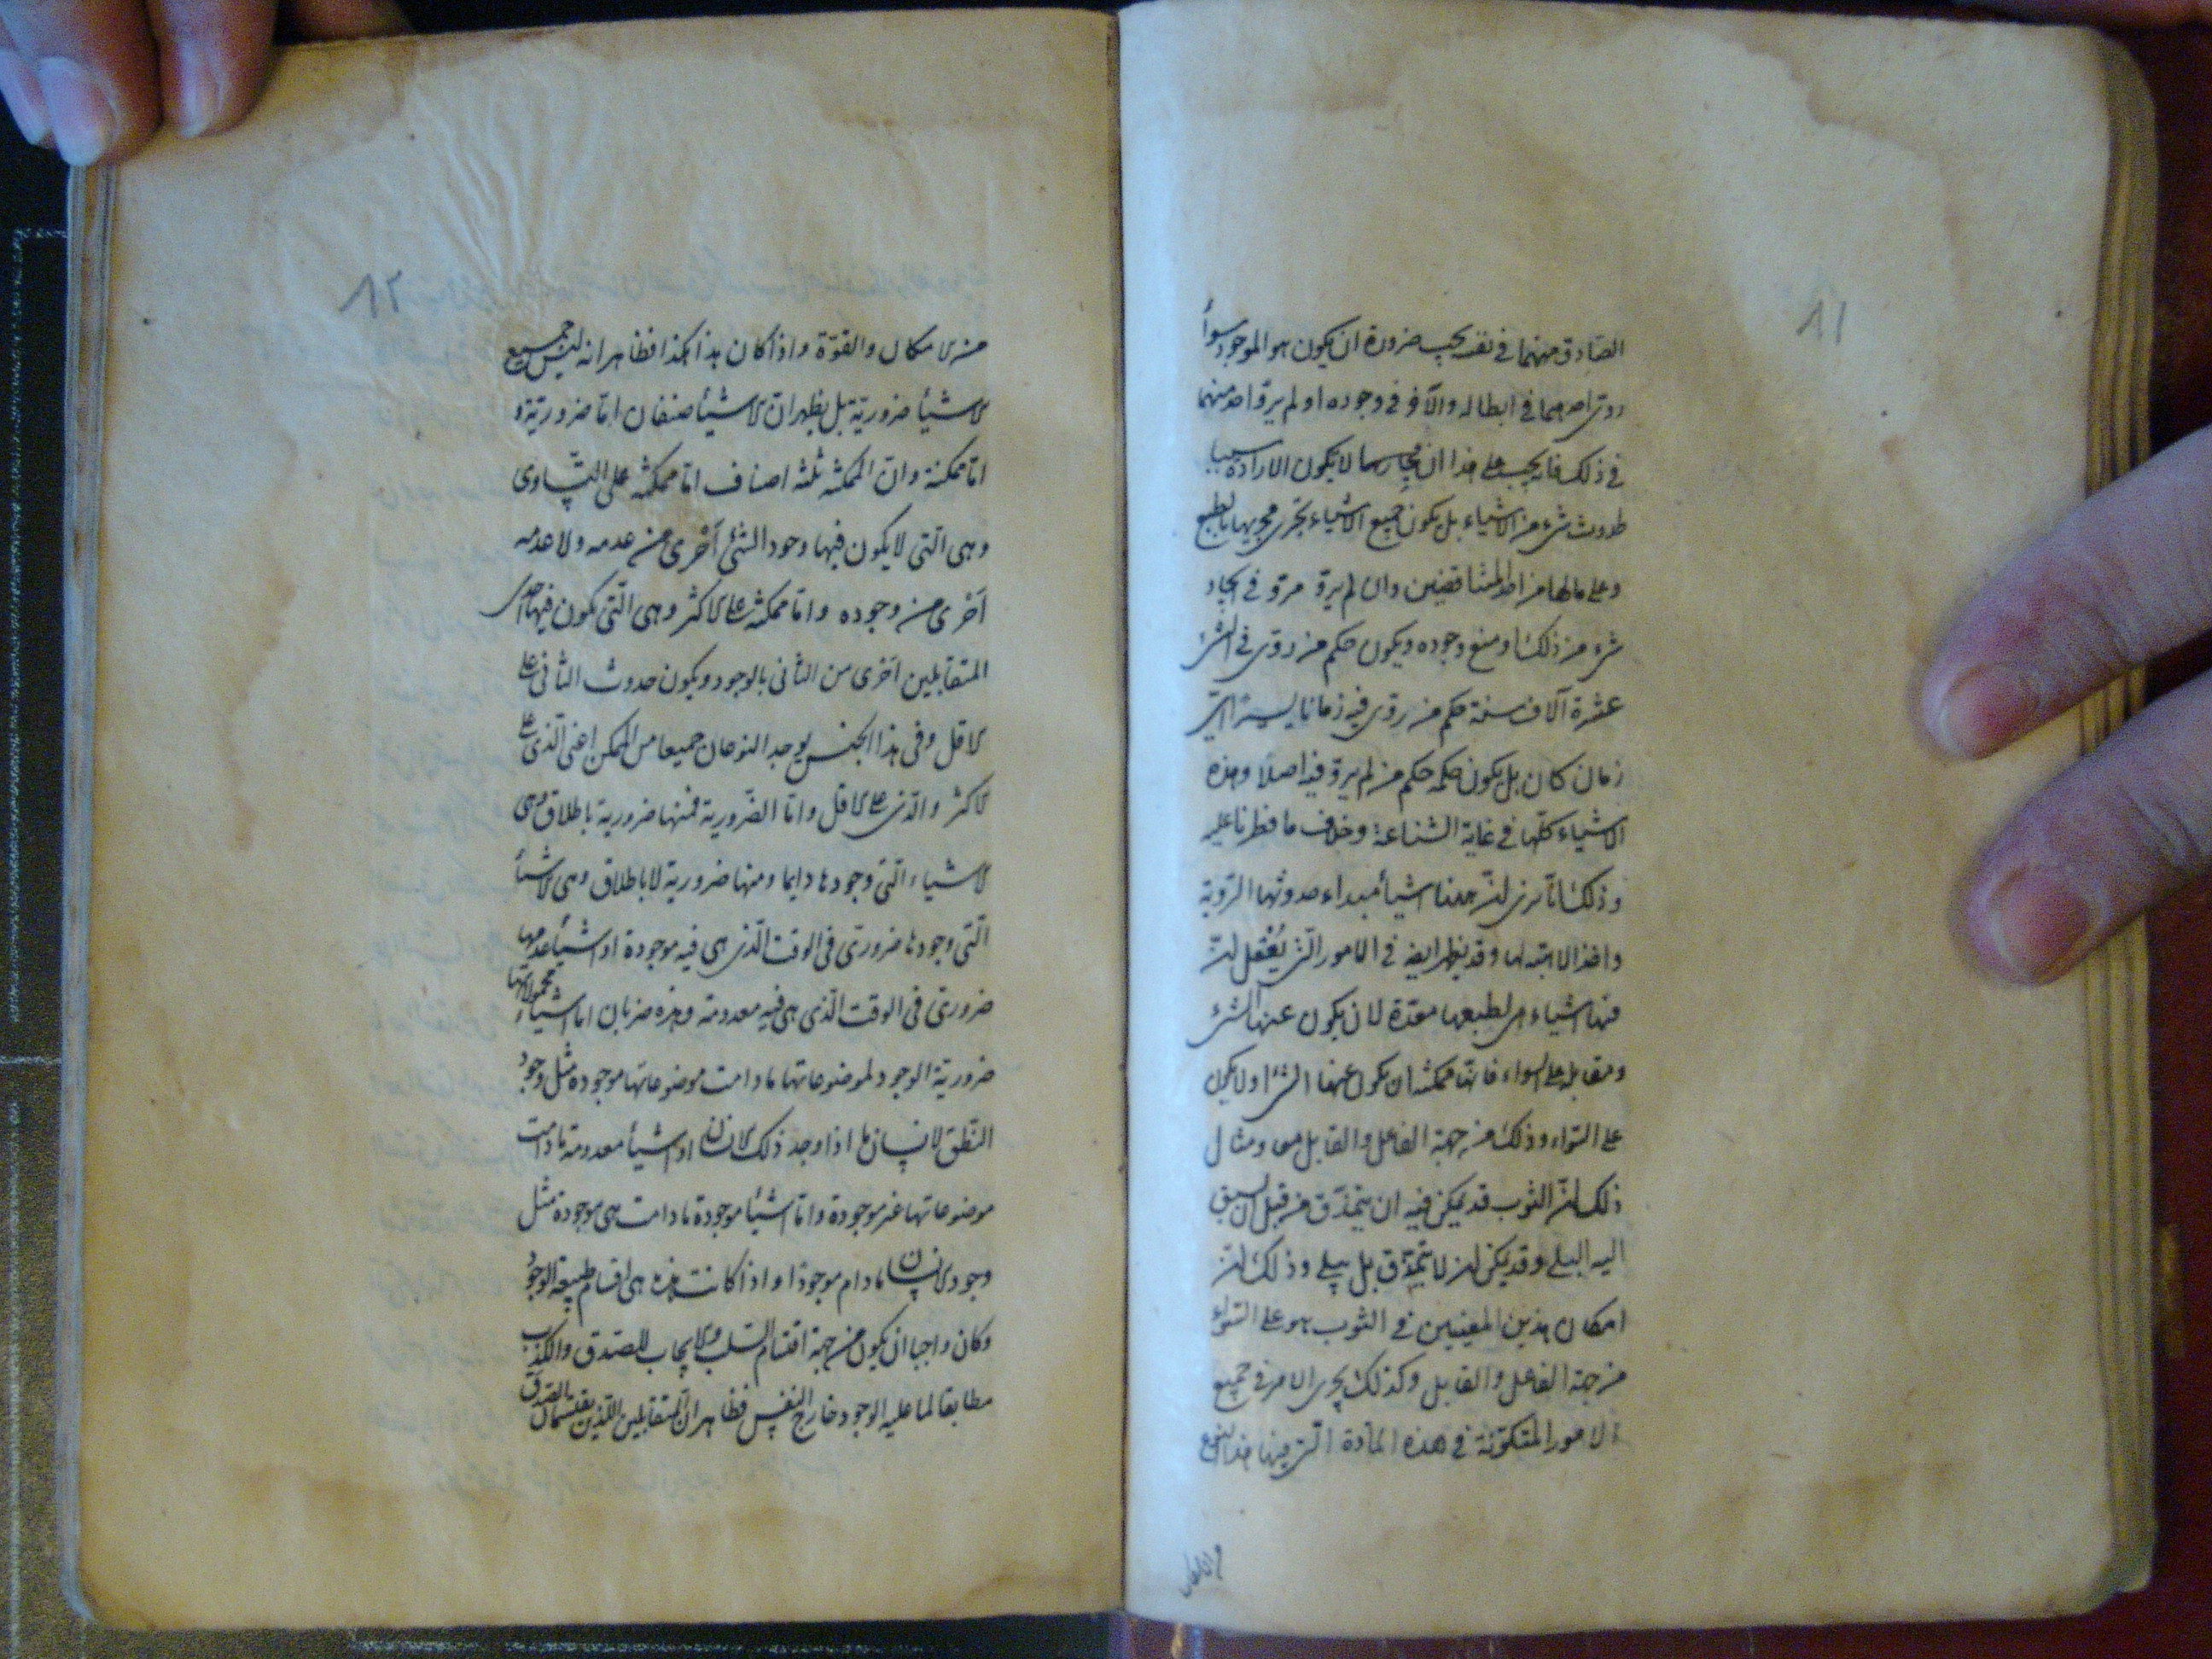 ١١
الصادق منهما في نفسه يجب ضرورة ان يكون هو الموجود سواء
روى احدهما في ابطاله والآخر في وجوده او لم يرو احد منهما
في ذلك فانه يجب على هذا ان لا يكون الارادة سببا
لحدوث شيء من الاشياء بل يكون جميع الاشياء تجري مجريها بالطبع
وعلى مالها من احد المتناقضين وان لم يرو مرو في ايجاد
شيء من ذلك او منع وجوده ويكون حكم من روى في الشيء
عشرة آلاف سنة حكم من روى فيه زمانا يسيرا اي
زمان كان بل يكون حكمه حكم من لم يرو فيه اصلا وهذه
الاشياء كلها في غاية الشناعة وخلاف ما فطرنا عليه
وذلك انا نرى ان ههنا اشياء مبداء حدوثها الروية
واخذ الاهبة لها وقد يظهر ايضا في الامور التي يعقل ان
فيها اشياء هي بطبعها معدة لان يكون عنها الشيء
ومقابله على السواء فانها ممكنة ان يكون عنها الشيء او لا يكون
على السواء وذلك من جهة الفاعل والقابل معا ومثال
ذلك ان الثوب قد يمكن فيه ان يتمزق من قبل ان يسبق
اليه البلى وقد يمكن ان لا يتمزق بل يبلى وذلك ان
امكان هذين المعنيين في الثوب هو على السواء
من جهة الفاعل والقابل وكذلك يجرى الامر في جميع
الامور المتكونة في هذه المادة التي فيها هذا النوع
من الامكان
١٢
من الامكان والقوة واذا كان هذا هكذا فظاهر انه ليس جميع
الاشياء ضرورية بل يظهر ان الاشياء صنفان اما ضرورية و
اما ممكنة وان الممكنة ثلثة اصناف اما ممكنة على التساوى
وهى التى لا يكون فيها وجود الشئ أحرى من عدمه ولا عدمه
أحرى من وجوده واما ممكنة على الاكثر وهى التى يكون فيها احدى
المتقابلين أحرى من الثانى بالوجود ويكون حدوث الثانى على
الاقل وفى هذا الجنس يوجد النوعان جميعا من الممكن اعنى الذى على
الاكثر والذى على الاقل واما الضرورية فمنها ضرورية باطلاق وهى
الاشياء التى وجودها دايما ومنها ضرورية لا باطلاق وهى الاشياء
التى وجودها ضرورى فى الوقت الذى هى فيه موجودة او اشياء عدمها
ضرورى فى الوقت الذى هى فيه معدومة وهذه ضربان اما اشياء محمولاتها
ضرورية الوجود لموضوعاتها مادامت موضوعاتها موجودة مثل وجود
النطق لانسان ما اذا وجد ذلك الانسان او اشياء معدومة مادامت
موضوعاتها غير موجودة واما اشياء موجودة مادامت هى موجودة مثل
وجود الانسان مادام موجودا واذا كانت هذه هى اقسام طبيعة الوجود
وكان واجبا ان يكون من جهة اقتسام السلب والايجاب للصدق والكذب
مطابقا لما عليه الوجود خارج النفس فظاهر ان المتقابلين اللذين يقتسمان الصدق